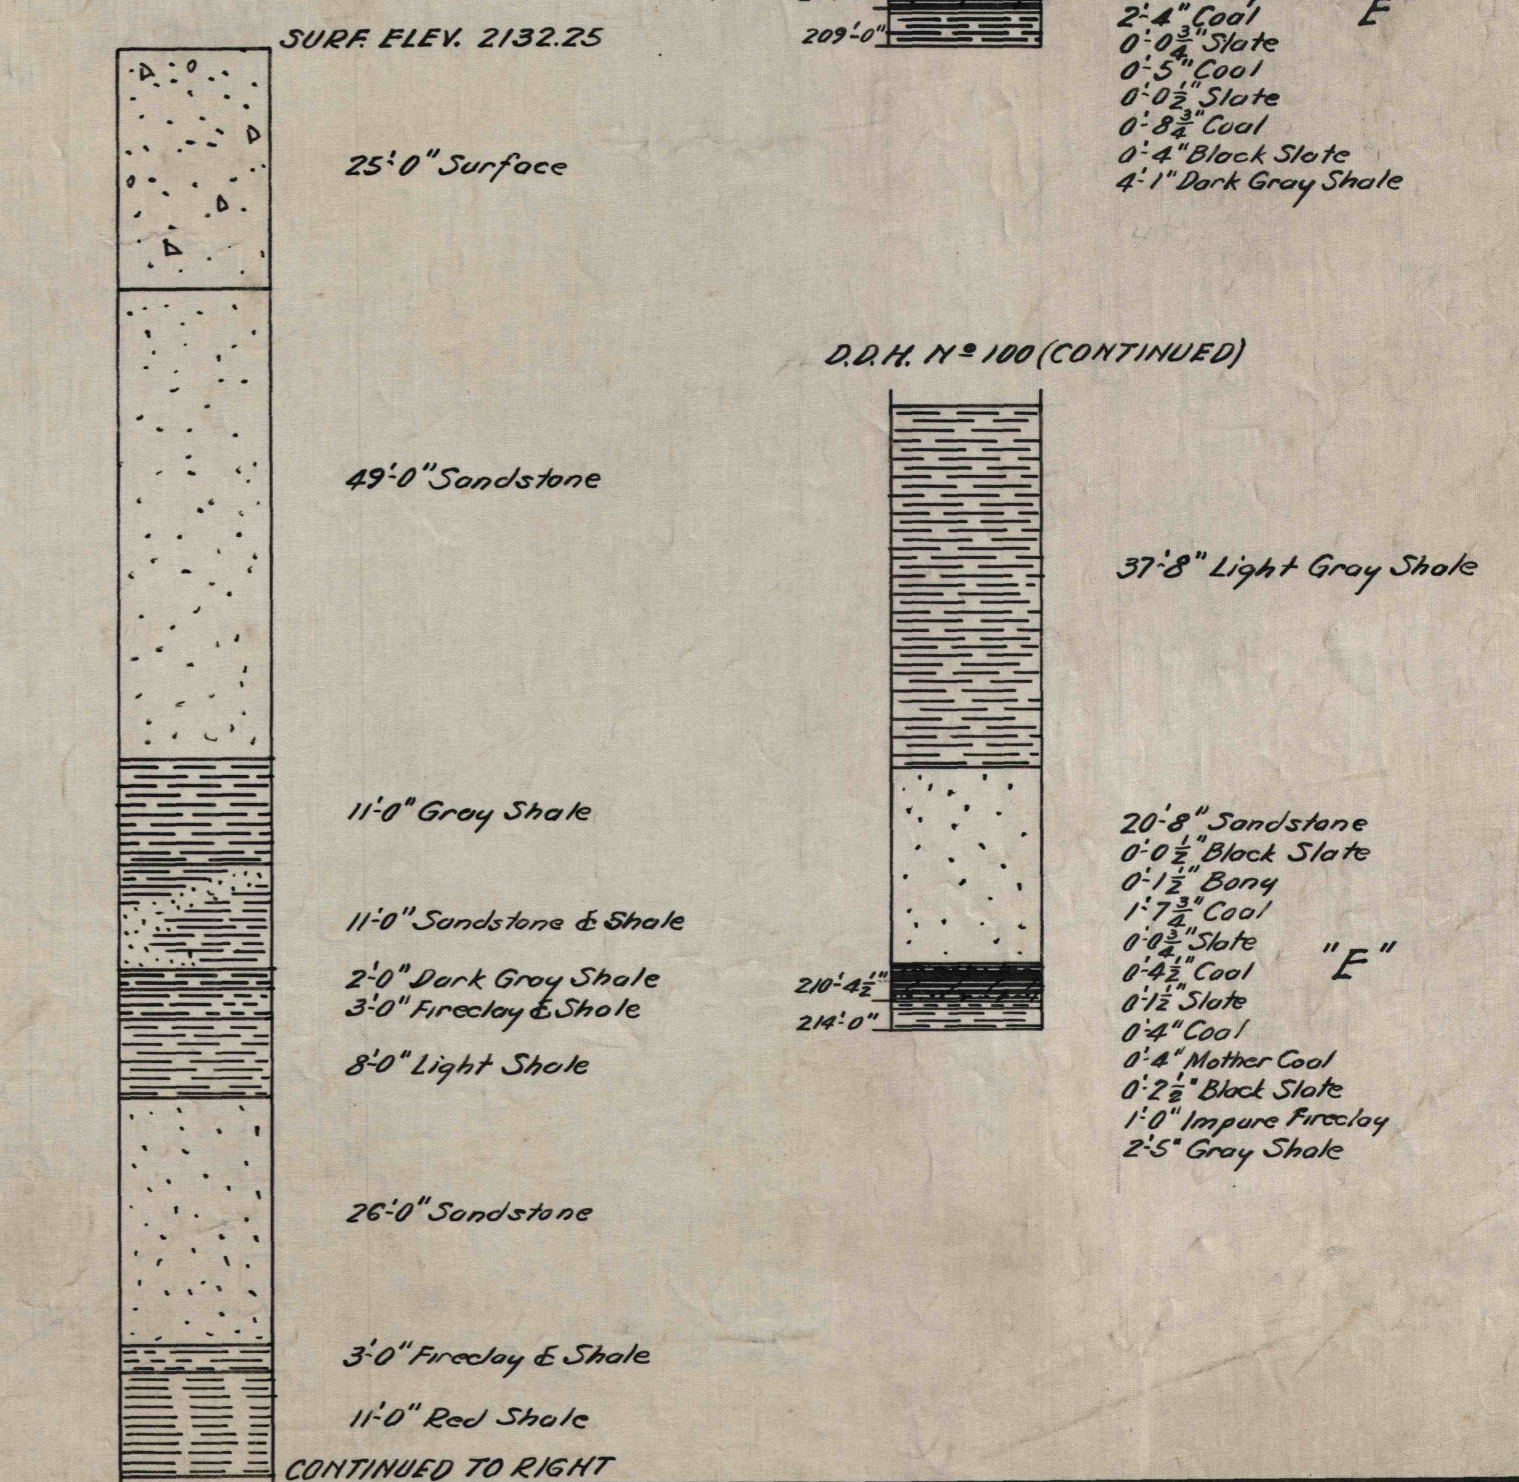 SURF. ELEV. 2132.25
25'-0" Surface
49'-0" Sandstone
11'-0" Gray Shale
11'-0" Sandstone & Shale
2'-0" Dark Gray Shale
3'-0" Fireclay & Shale
8'-0" Light Shale
26'-0" Sandstone
3'-0" Fireclay & Shale
11'-0" Red Shale
CONTINUED TO RIGHT
209'-0"
2'-4" Coal
E
0'-0 3/4" Slate
0'-5" Coal
0'-0 1/2" Slate
0'-8 3/4" Coal
0'-4" Black Slate
4'-1" Dark Gray Shale
D.D.H. Nº 100 (CONTINUED)
37'-8" Light Gray Shale
20'-8" Sandstone
0'-0 1/2" Black Slate
0'-1 1/2" Bony
1'-7 3/4" Coal
0'-0 3/4" Slate
"E"
0'-4 1/2" Coal
0'-1 1/2" Slate
0'-4" Coal
0'-4" Mother Coal
0'-2 1/2" Black Slate
1'-0" Impure Fireclay
2'-5" Gray Shale
210'-4 1/2"
214'-0"